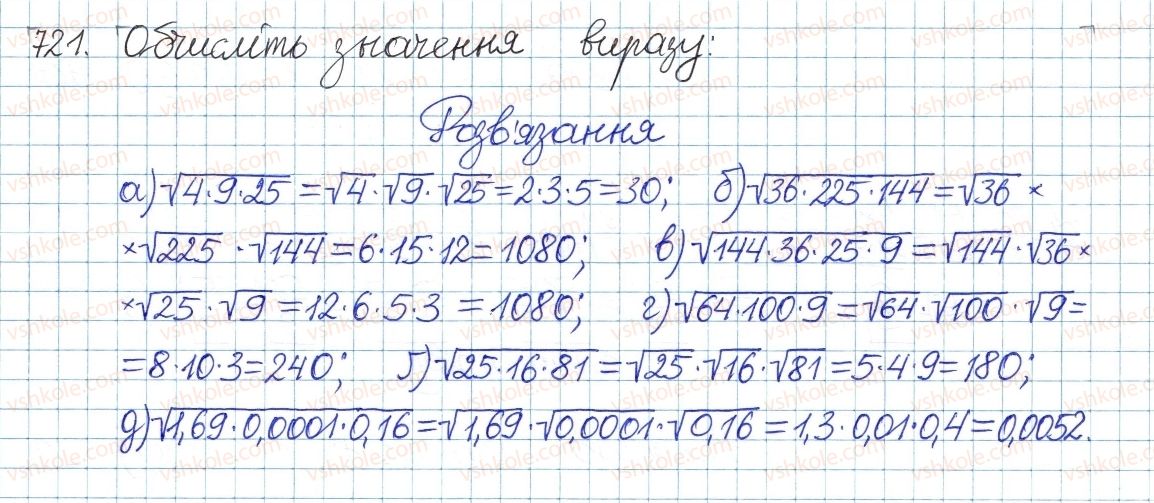 721. Обчисліть значення виразу:
Розв'язання
а)√4·9·25 = √4·√9·√25=2·3·5=30; б)√36·225·144=√36 ×
×√225·√144=6·15·12=1080; в)√144·36·25·9=√144·√36×
×√25·√9=12·6·5·3=1080; г)√64·100·9=√64·√100·√9=
=8·10·3=240; ґ)√25·16·81=√25·√16·√81=5·4·9=180;
д)√1,69·0,0001·0,16=√1,69·√0,0001·√0,16=1,3·0,01·0,4=0,0052.